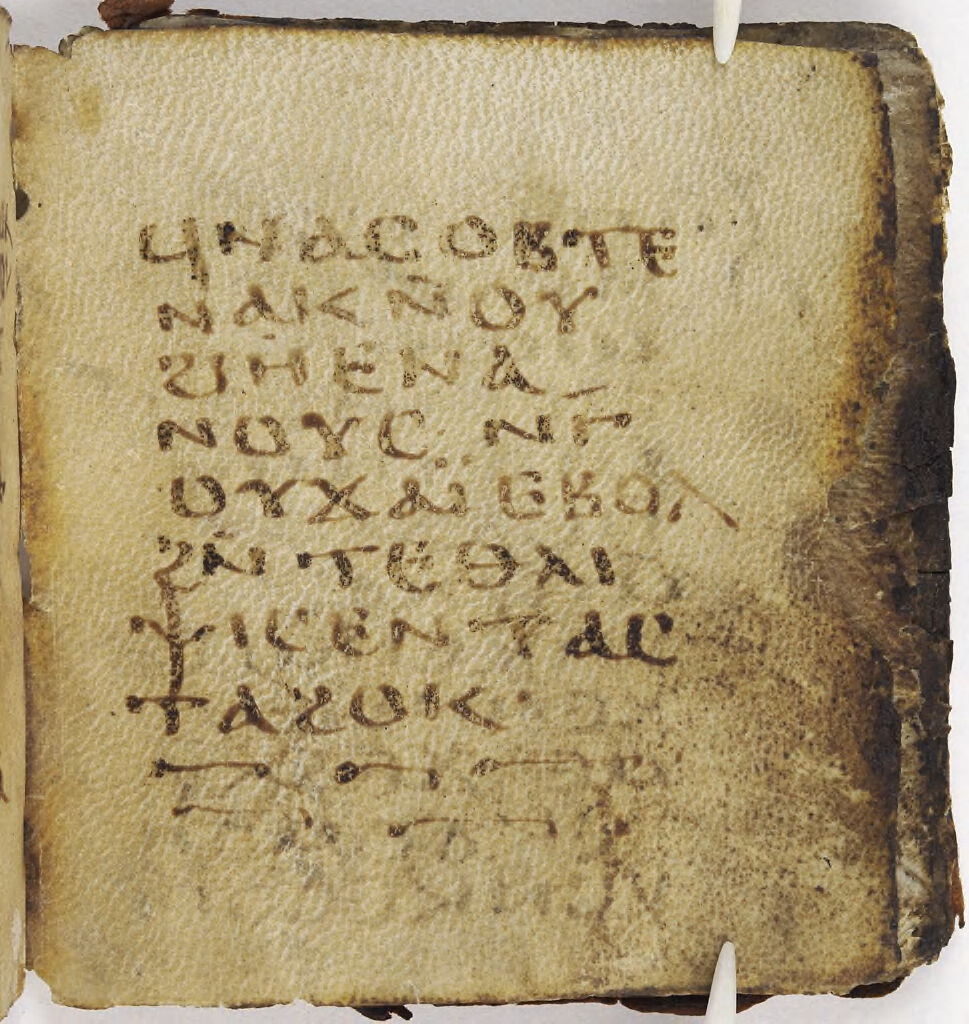 ϤⲚⲀⲤⲞⲂⲦⲈ
ⲚⲀⲔ ⲚⲞⲨ
ϨⲎⲈ ⲚⲀ
ⲚⲞⲨⲤ ⲚⲄ̅
ⲞⲨϪⲀⲒ̈ ⲈⲂⲞⲖ
ϨⲚ ⲦⲈⲐⲖⲒ
ⲮⲒⲤ ⲈⲚⲦⲀⲤ
ⲦⲀϨⲞⲔ·